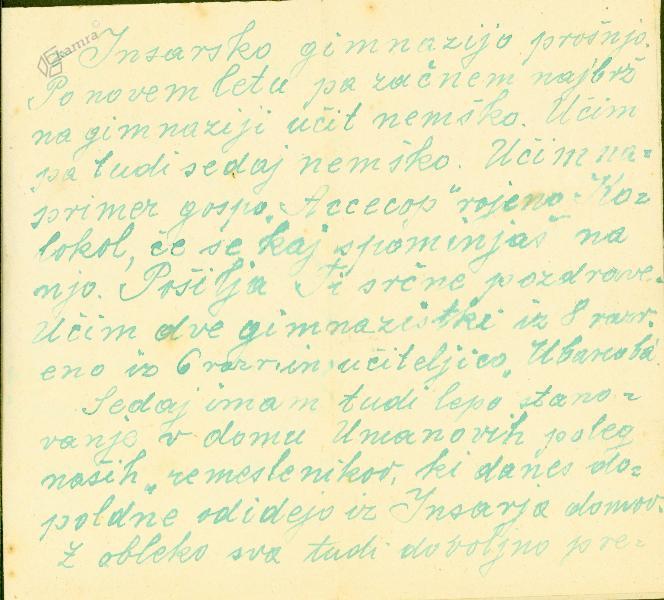 kamra
Insarsko gimnazijo prošnjo.
Po novem letu pa začnem najbrž
na gimnaziji učit nemško. Učim
pa tudi sedaj nemško. Učim na=
primer gospo „Accecop“ rojeno Ko=
lokol, če se kaj spominjaš na
njo. Pošilja Ti srčne pozdrave.
Učim dve gimnazistki iz 8 razr.
eno iz 6 razr. in učiteljico
Sedaj imam tudi lepo stano=
vanje v domu Umanovih poleg
naših „remeslenikov, ki danes do=
poldne odidejo iz Insarja domov.
Z obleko sva tudi dovoljno pre=